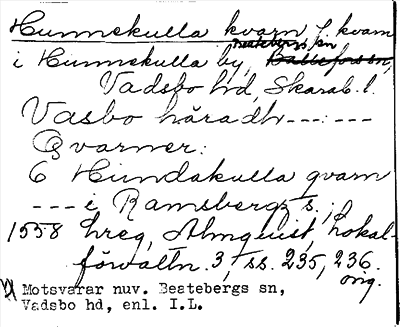 Hunnekulla kvarn f. kvarn
Beatebergs sn
i Hunnekulla by, Bällefors sn,
Vadsbo hd, Skarab. l.
Vasbo häradh ---:---
Qvarner:
6 Hundakulla qvarn
--- i Ramsbergz s.;
1558 Lreg, Almquist, Lokal-
förvaltn. 3, ss. 235, 236.
orig.
x) Motsvarar nuv. Beatebergs sn,
Vadsbo hd, enl. I.L.